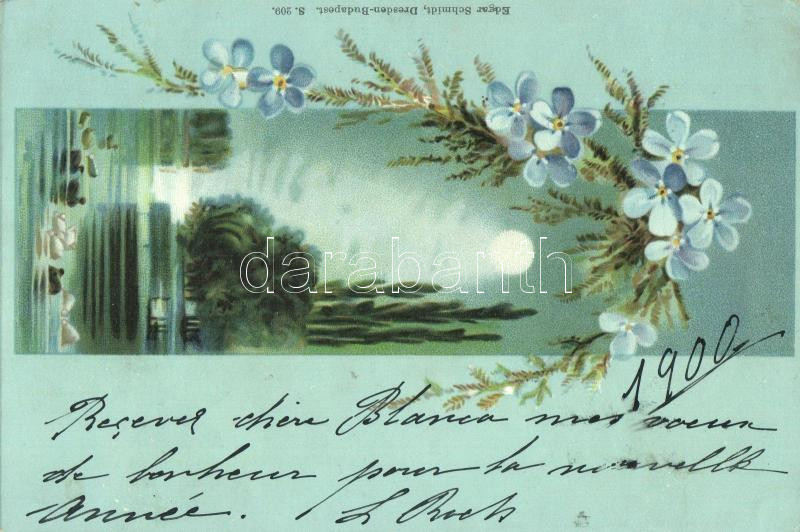 Edgar Schmidt, Dresden-Budapest. S. 209.
darabanth
1900
Reçevez chère Blanca mes voeux
de bonheur pour la nouvelle
Année. L Roch